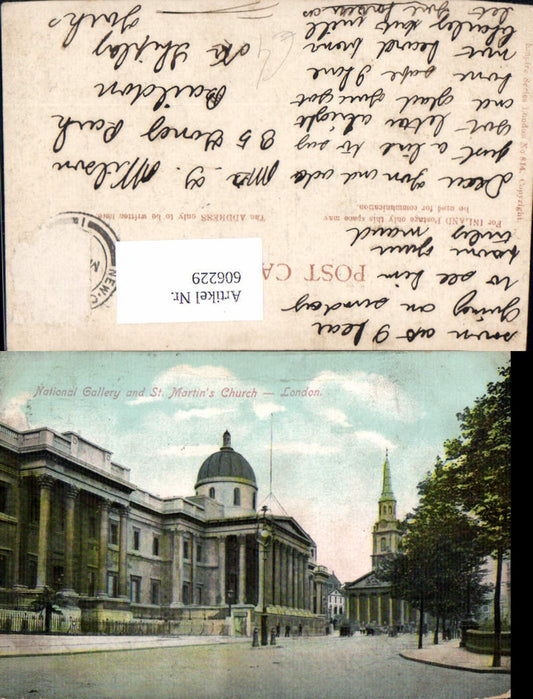 Empire Series London No 814. Copyright.
For INLAND Postage only this space may
be used for communication.
The ADDRESS only to be written here
POST CA
NEW-C
Artikel Nr.
606229
Dear you and ada
just a line to say
got letter alright
and glad you got
home safe I have
not heard from
Charley but will
let you
soon as I hear
going on sunday
to see him
Mrs. J. Wilson
35 Park
Baildon
Nr Shipley
Yorks
National Gallery and St. Martin's Church — London.